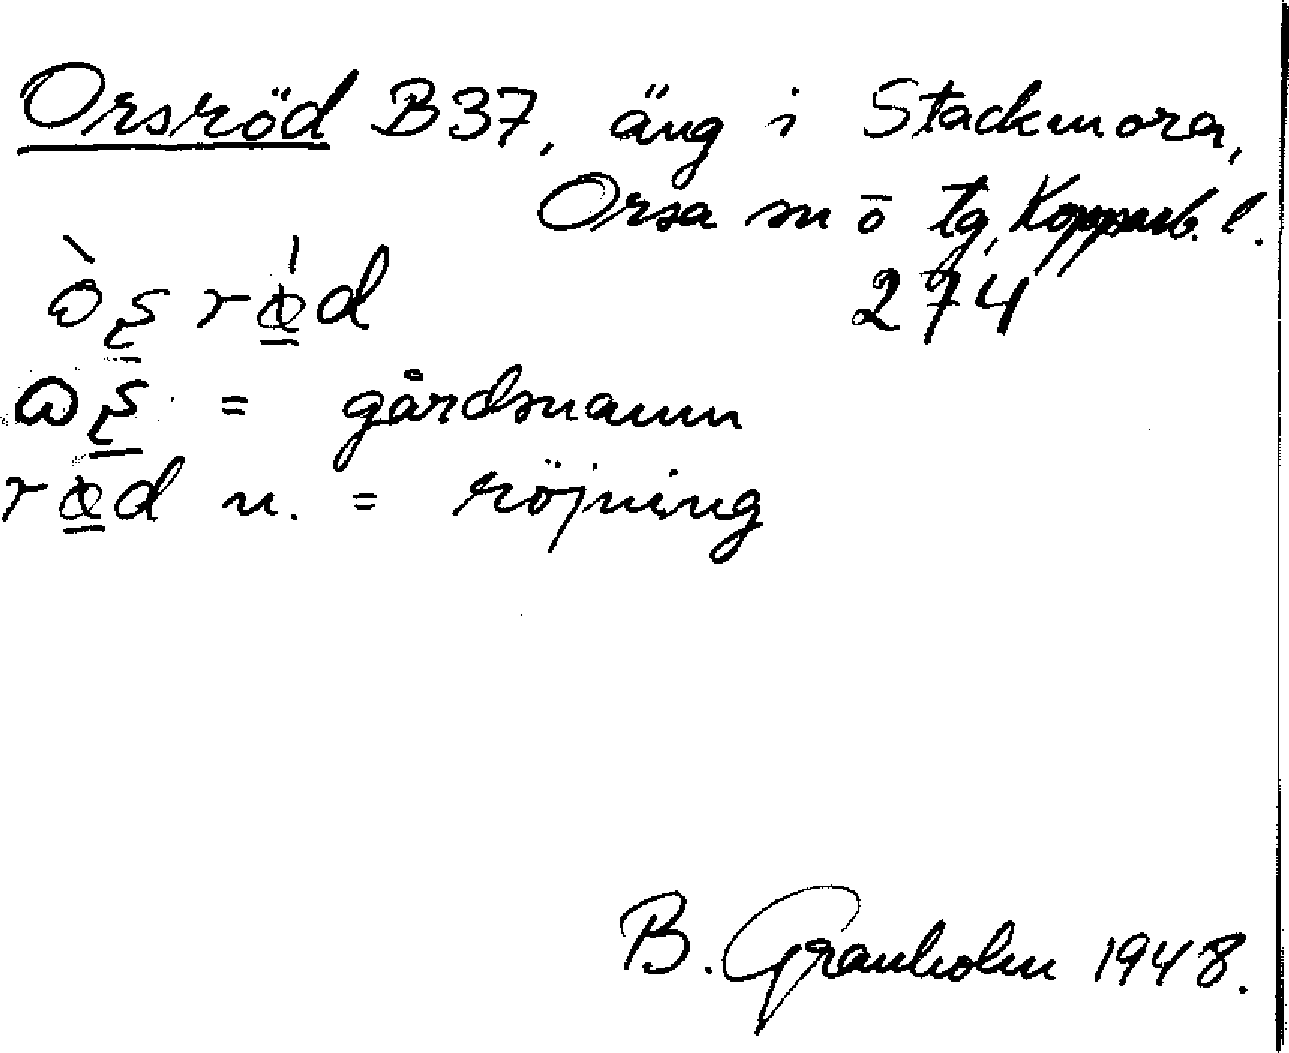 Orsröd B37, äng i Stackmora,
Orsa sn ö tg, Kopparb. l.
274
= gårdsnamn
n. = röjning
B. Granholm 1948.